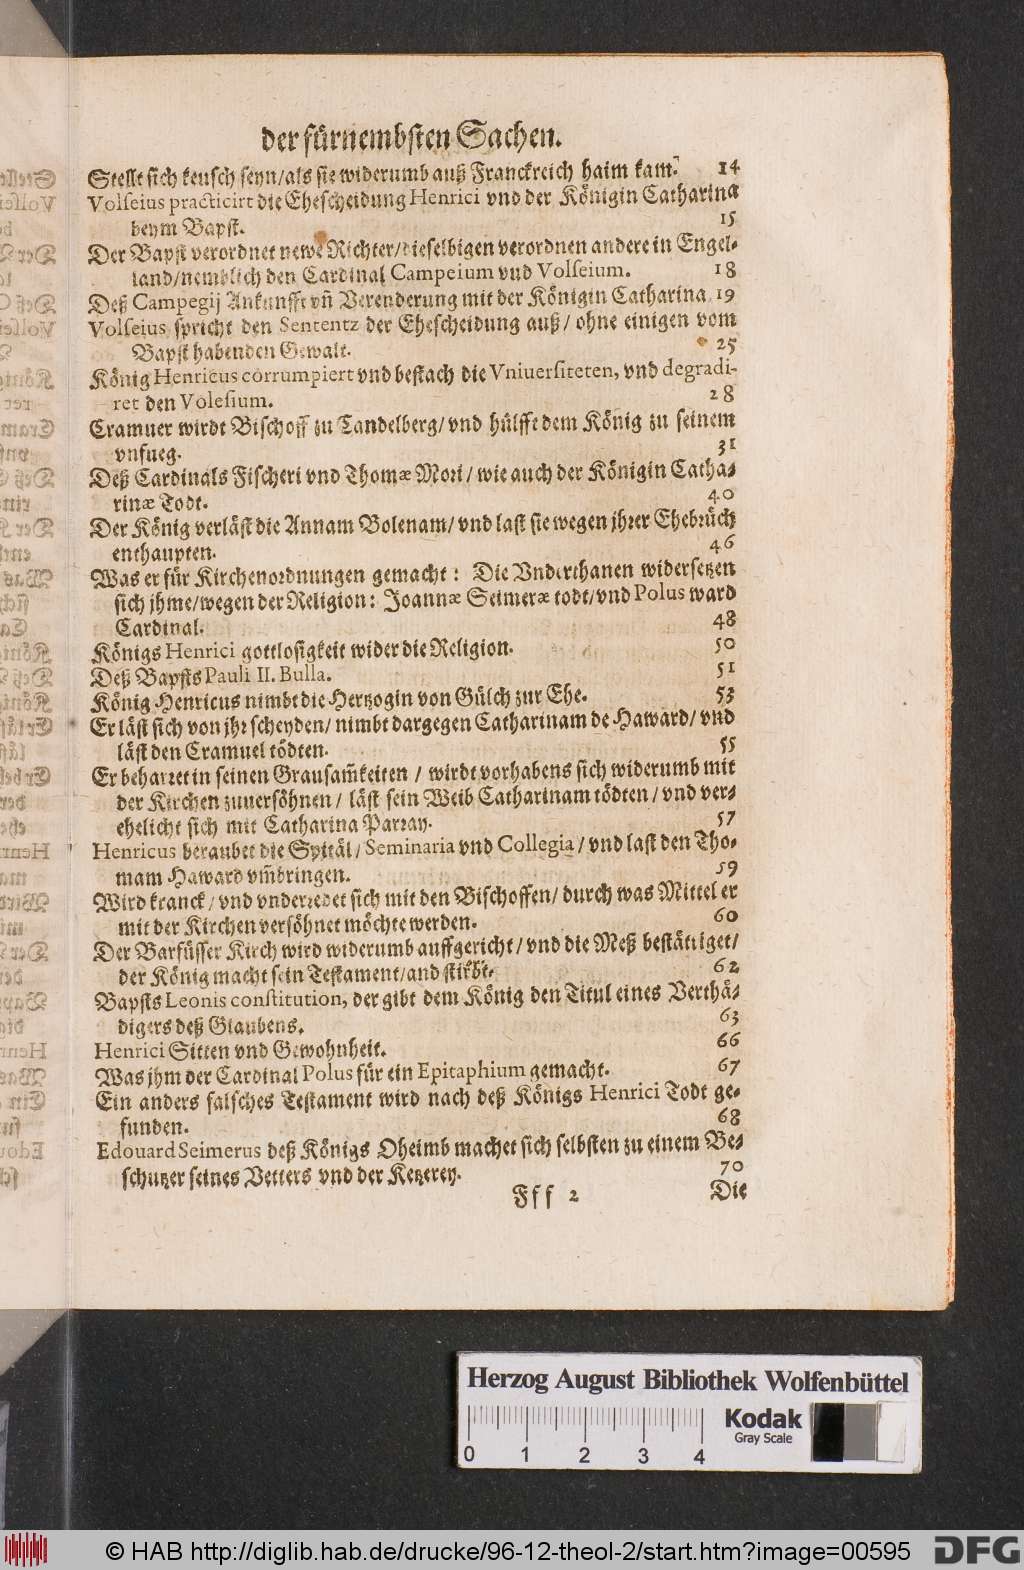 der fürnembsten Sachen.
Stellt sich keusch seyn/als sie widerumb auß Franckreich haim kam. 14
Volseius practicirt die Ehescheidung Henrici vnd der Königin Catharina
beym Bapst. 15
Der Bapst verordnet newe Richter/dieselbigen verordnen andere in Engel-
land/nemblich den Cardinal Campeium vnd Volseium. 18
Deß Campegij Ankunfft vñ Verenderung mit der Königin Catharina. 19
Volseius spricht den Sententz der Ehescheidung auß/ ohne einigen vom
Bapst habenden Gewalt. 25
König Henricus corrumpiert vnd bestach die Vniuersiteten, vnd degradi-
ret den Volesium. 28
Cramuer wirdt Bischoff zu Tandelberg/vnd hülfft dem König zu seinem
vnfueg. 31
Deß Cardinals Fischeri vnd Thomæ Mori/wie auch der Königin Catha-
rinæ Todt. 40
Der König verläst die Annam Bolenam/vnd last sie wegen jhrer Ehebrüch
enthaupten. 46
Was er für Kirchenordnungen gemacht: Die Vnderthanen widersetzen
sich jhme/wegen der Religion: Joannæ Seimeræ todt/vnd Polus ward
Cardinal. 48
Königs Henrici gottlosigkeit wider die Religion. 50
Deß Bapsts Pauli II. Bulla. 51
König Henricus nimbt die Hertzogin von Gülch zur Ehe. 53
Er läst sich von jhr scheyden/nimbt dargegen Catharinam de Haward/vnd
läst den Cramuel tödten. 55
Er beharret in seinen Grausam̃keiten / wirdt vorhabens sich widerumb mit
der Kirchen zuuersöhnen/ läst sein Weib Catharinam tödten/vnd ver-
ehelicht sich mit Catharina Parray. 57
Henricus beraubet die Spitäl/Seminaria vnd Collegia/vnd last den Tho-
mam Haward vm̃bringen. 59
Wird kranck/vnd vnderredet sich mit den Bischoffen/durch was Mittel er
mit der Kirchen versöhnet möchte werden. 60
Der Barfüsser Kirch wird widerumb auffgericht/vnd die Meß bestättiget/
der König macht sein Testament/and stirbt. 62
Bapsts Leonis constitution, der gibt dem König den Titul eines Verthä-
digers deß Glaubens. 63
Henrici Sitten vnd Gewohnheit. 66
Was jhm der Cardinal Polus für ein Epitaphium gemacht. 67
Ein anders falsches Testament wird nach deß Königs Henrici Todt ge-
funden. 68
Edouard Seimerus deß Königs Oheimb machet sich selbsten zu einem Be-
schutzer seines Vetters vnd der Ketzerey. 70
Fff 2 Die
Herzog August Bibliothek Wolfenbüttel
0 1 2 3 4
Kodak
Gray Scale
© HAB http://diglib.hab.de/drucke/96-12-theol-2/start.htm?image=00595
DFG